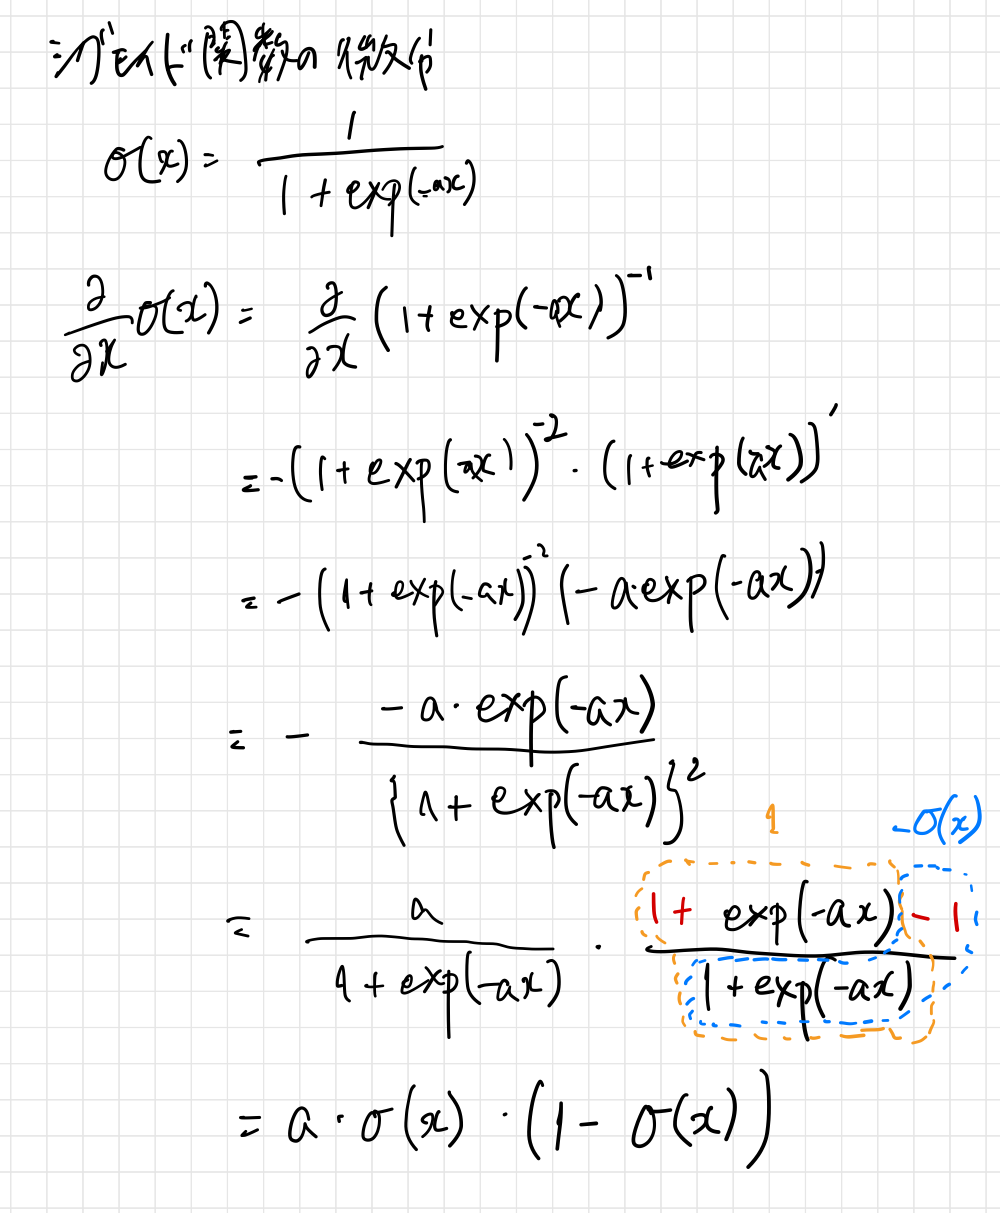 シグモイド関数の微分
σ(x) = 1 / (1 + exp(-ax))
∂/∂x σ(x) = ∂/∂x (1 + exp(-ax))^-1
= -(1 + exp(-ax))^-2 · (1 + exp(-ax))'
= -(1 + exp(-ax))^-2 (-a·exp(-ax))
= - (-a · exp(-ax)) / {1 + exp(-ax)}^2
1 -σ(x)
= a / (1 + exp(-ax)) · (1 + exp(-ax) - 1) / (1 + exp(-ax))
= a · σ(x) · (1 - σ(x))